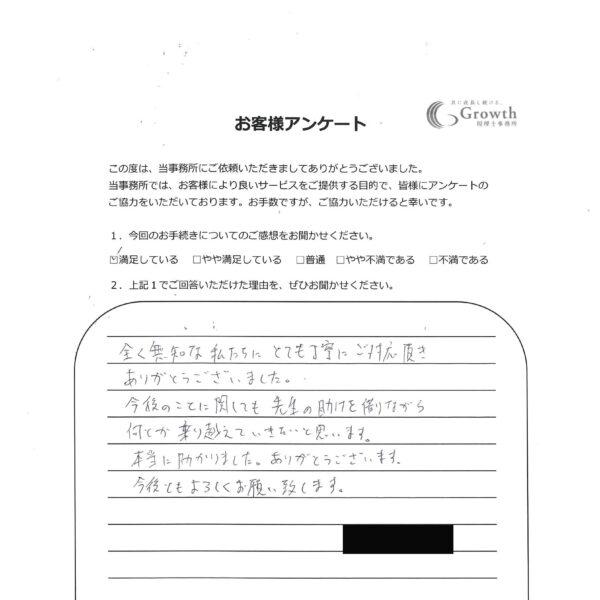 共に成長し続ける。
Growth
税理士事務所
お客様アンケート
この度は、当事務所にご依頼いただきましてありがとうございました。
当事務所では、お客様により良いサービスをご提供する目的で、皆様にアンケートの
ご協力をいただいております。お手数ですが、ご協力いただけると幸いです。
1．今回のお手続きについてのご感想をお聞かせください。
☑満足している □やや満足している □普通 □やや不満である □不満である
2．上記１でご回答いただけた理由を、ぜひお聞かせください。
全く無知な私たちにとても丁寧にご対応頂き
ありがとうございました。
今後のことに関しても先生の助けを借りながら
何とか乗り越えていきたいと思います。
本当に助かりました。ありがとうございます。
今後ともよろしくお願い致します。